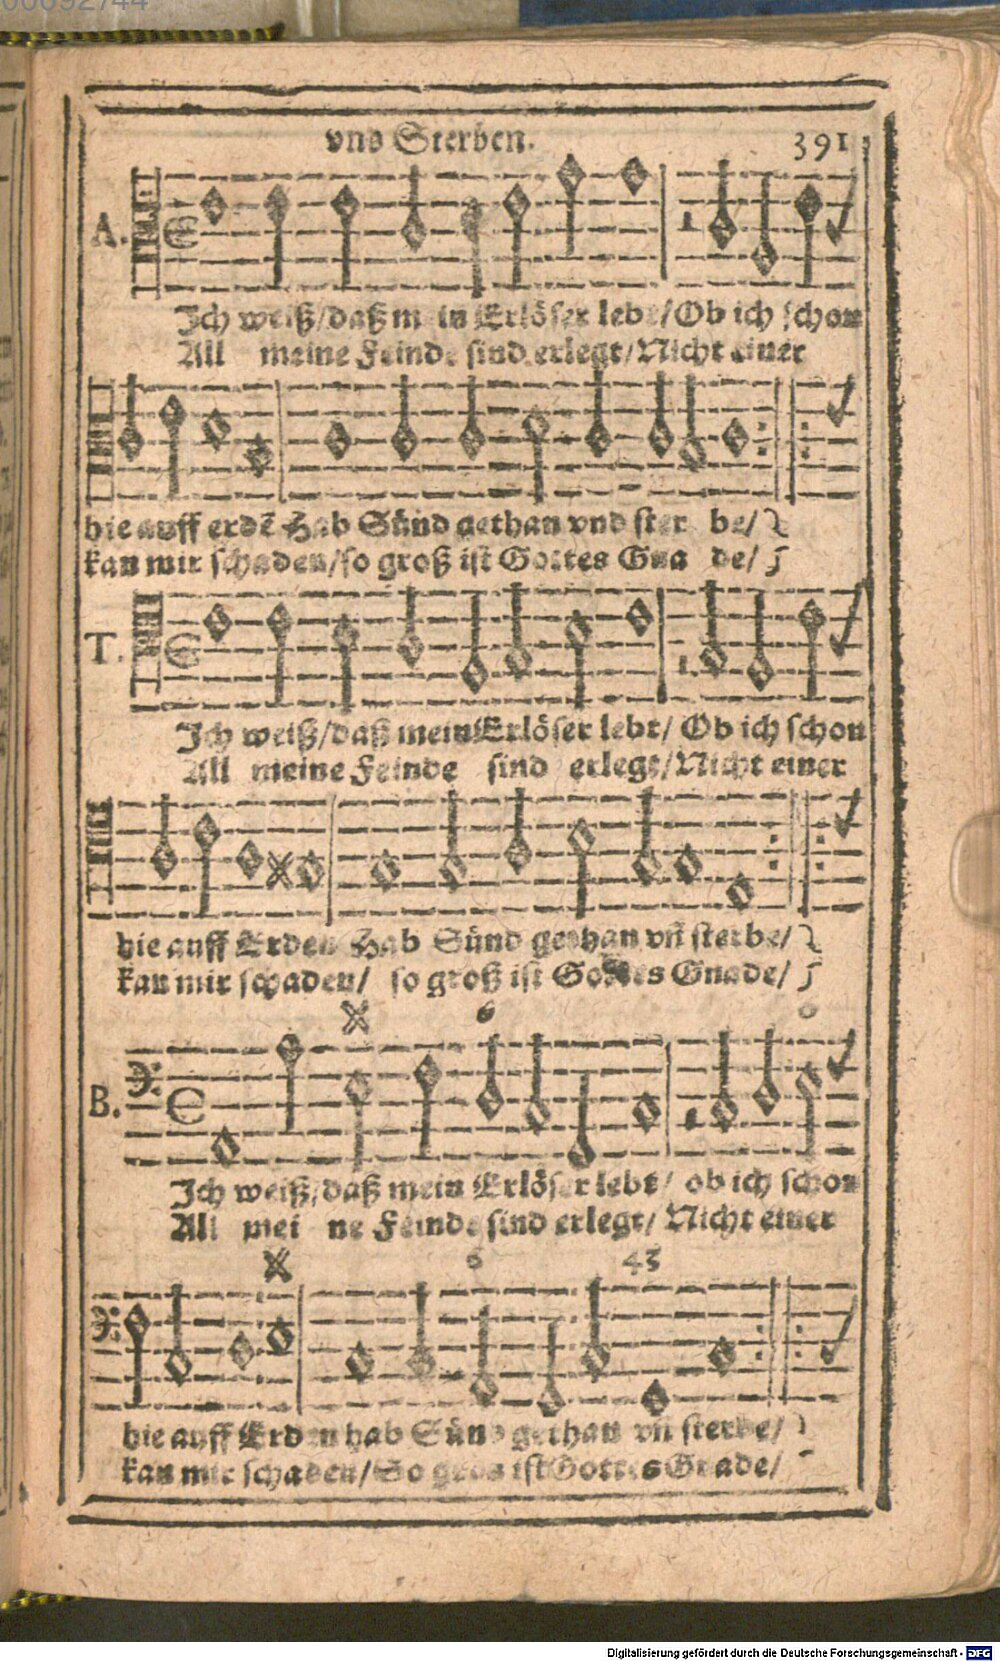 00692744
vnd Sterben. 391
A.
Ich weiß/daß mein Erlöser lebt/Ob ich schon
All meine Feinde sind erlegt/Nicht einer
hie auff erdẽ Hab Sünd gethan vnd ster be/
kan mir schaden/so groß ist Gottes Gna de/
T.
Ich weiß/daß mein Erlöser lebt/ Ob ich schon
All meine Feinde sind erlegt/Nicht einer
hie auff Erden Hab Sünd gethan vñ sterbe/
kan mir schaden/ so groß ist Gottes Gnade/
6 6
B.
Ich weiß/daß mein Erlöser lebt/ ob ich schon
All mei ne Feinde sind erlegt/ Nicht einer
6 43
hie auff Erden hab Sünd gethan vñ sterbe/
kan mir schaden/So gros ist Gottes Gnade/
Digitalisierung gefördert durch die Deutsche Forschungsgemeinschaft - DFG